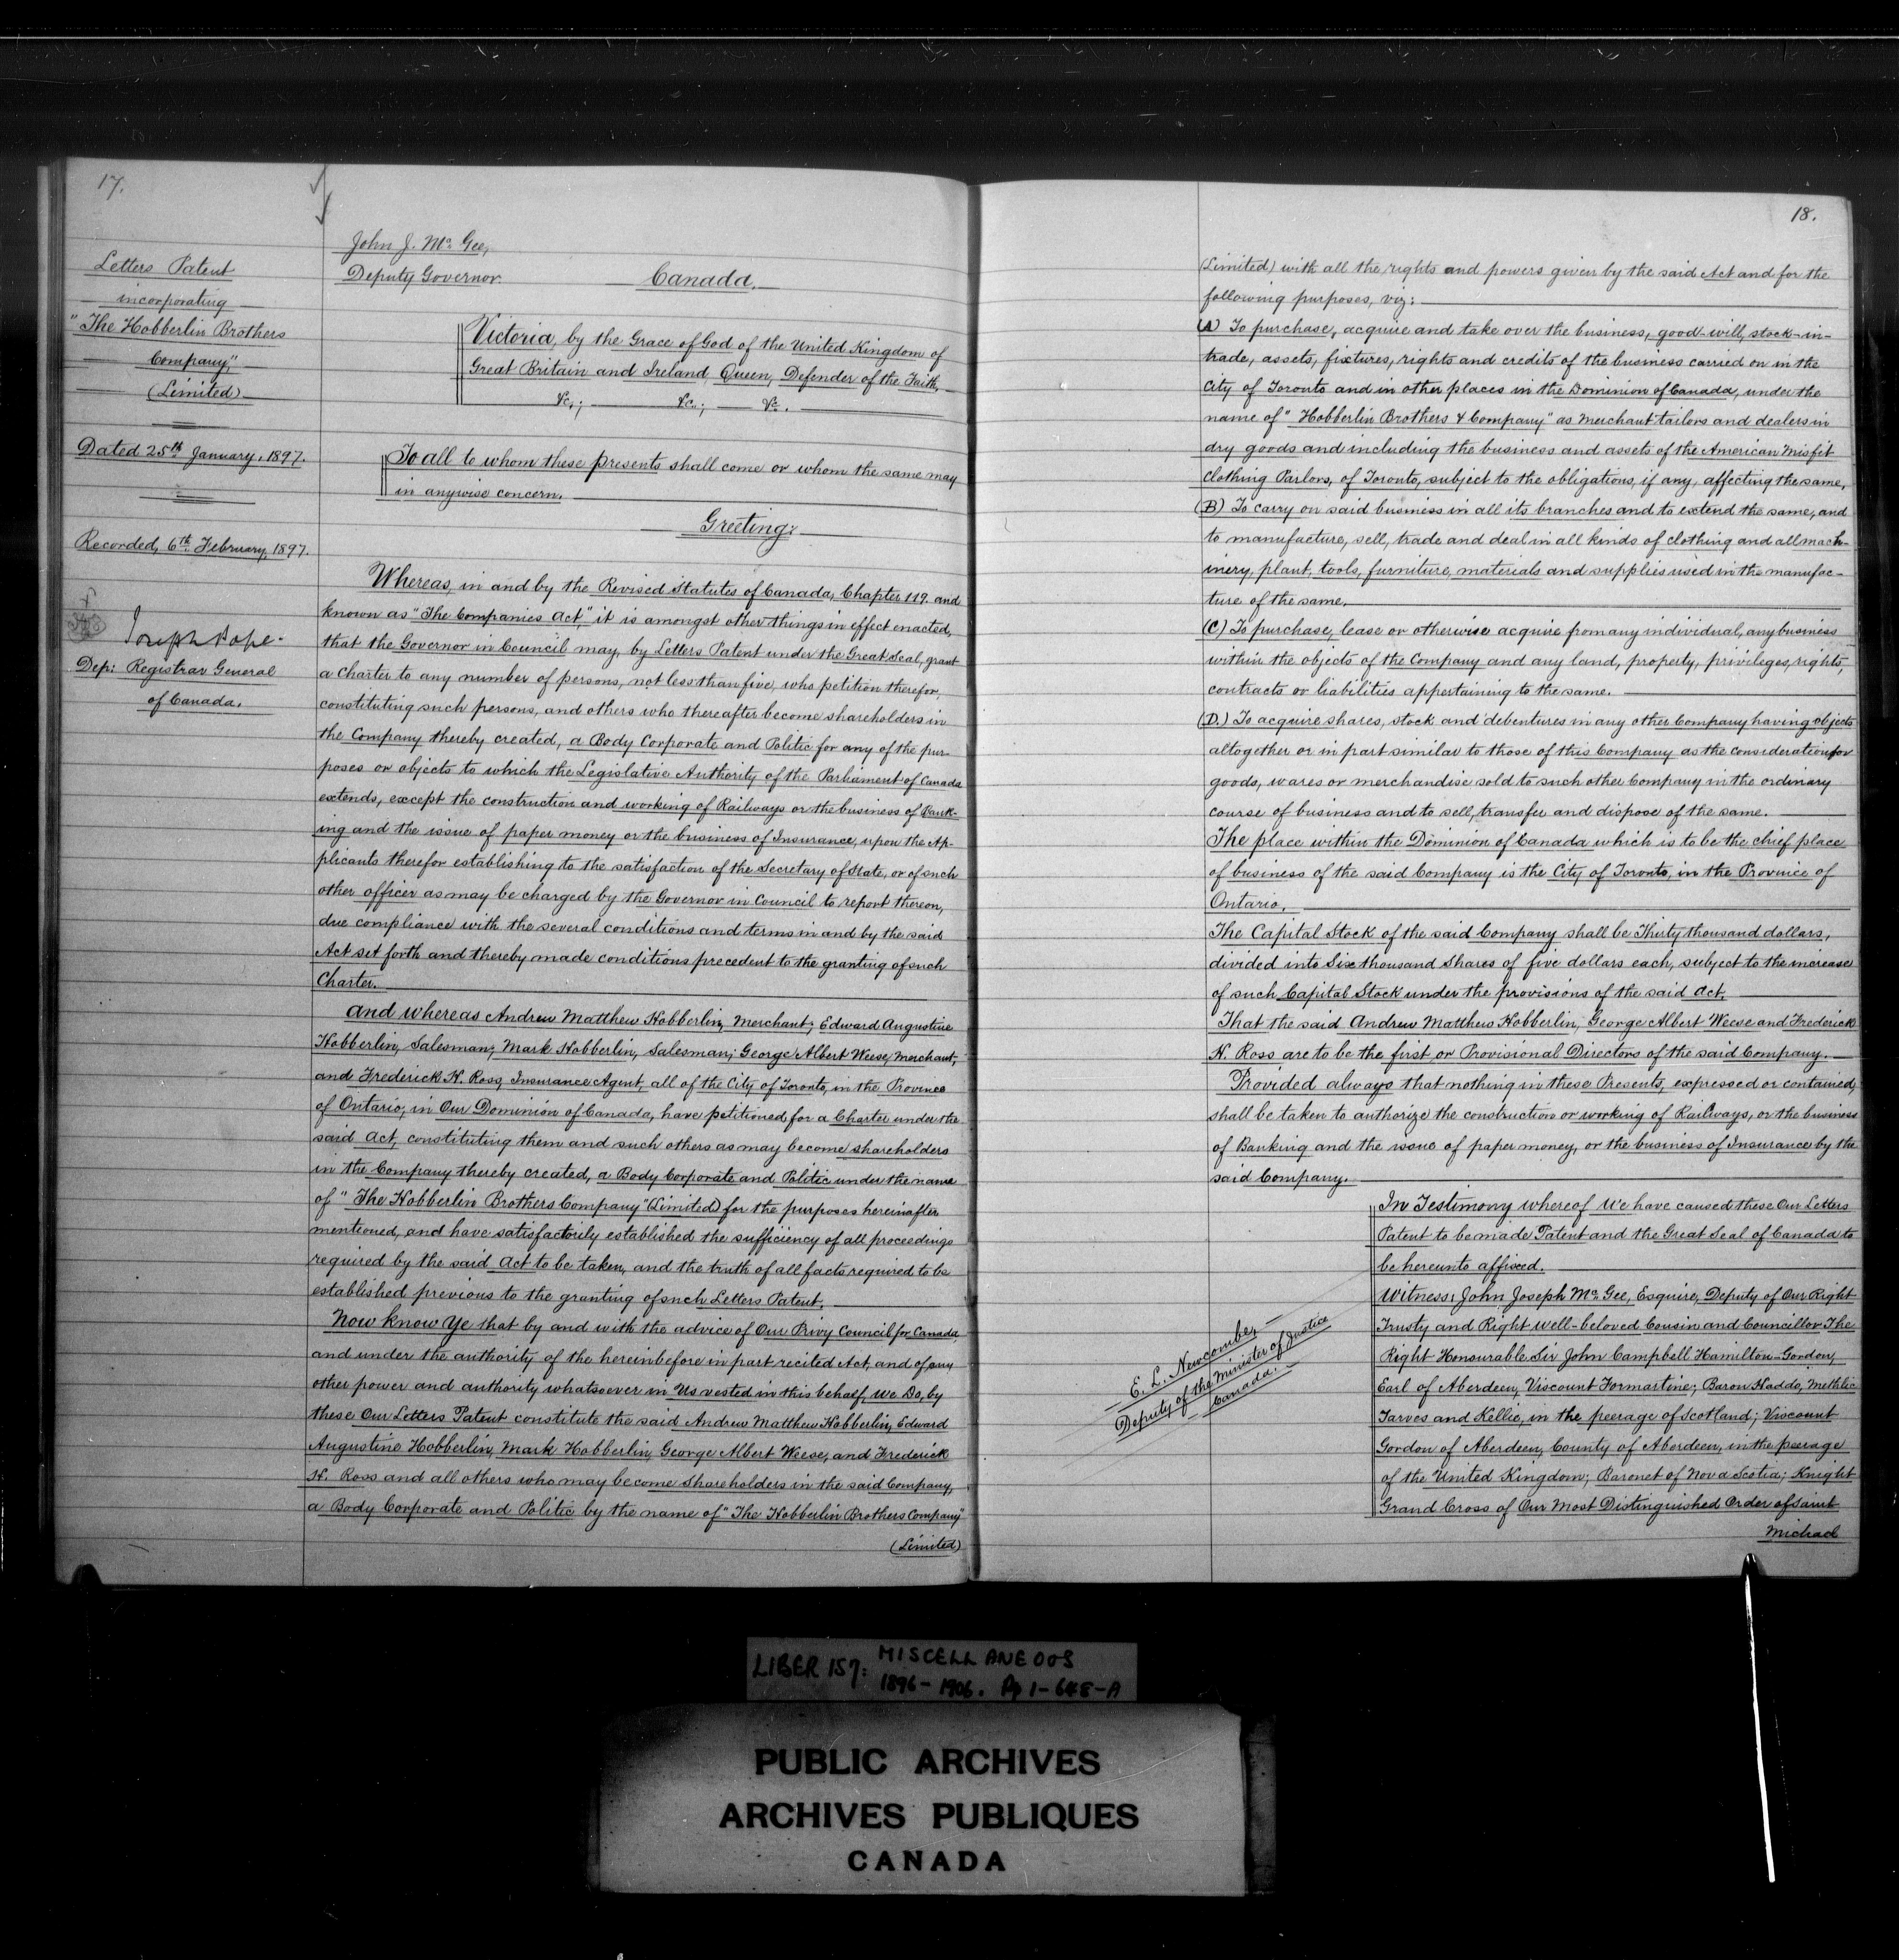 17.
Letters Patent
incorporating
"The Hobberlin Brothers
Company,"
(Limited)
Dated 25th January, 1897.
Recorded, 6th February, 1897.
Joseph Pope
Dep: Registrar General
of Canada.
John J. McGee,
Deputy Governor.
Canada.
Victoria, by the Grace of God of the United Kingdom of
Great Britain and Ireland, Queen, Defender of the Faith,
&c.; &c.; &c.
To all to whom these presents shall come or whom the same may
in anywise concern.
Greeting:
Whereas, in and by the Revised Statutes of Canada, Chapter 119. and
known as "The Companies Act," it is amongst other things in effect enacted,
that the Governor in Council may, by Letters Patent under the Great Seal, grant
a Charter to any number of persons, not less than five, who petition therefor,
constituting such persons, and others who thereafter become shareholders in
the Company thereby created, a Body Corporate and Politic for any of the pur-
poses or objects to which the Legislative Authority of the Parliament of Canada
extends, except the construction and working of Railways or the business of Bank-
ing and the issue of paper money or the business of Insurance, upon the Ap-
plicants therefor establishing to the satisfaction of the Secretary of State, or of such
other officer as may be charged by the Governor in Council to report thereon,
due compliance with the several conditions and terms in and by the said
Act set forth and thereby made conditions precedent to the granting of such
Charter.
And whereas Andrew Matthew Hobberlin, Merchant; Edward Augustine
Hobberlin, Salesman; Mark Hobberlin, Salesman; George Albert Weese, Merchant;
and Frederick H. Ross, Insurance Agent, all of the City of Toronto, in the Province
of Ontario; in Our Dominion of Canada, have petitioned for a Charter under the
said Act, constituting them and such others as may become shareholders
in the Company thereby created, a Body Corporate and Politic under the name
of "The Hobberlin Brothers Company" (Limited) for the purposes hereinafter
mentioned, and have satisfactorily established the sufficiency of all proceedings
required by the said Act to be taken, and the truth of all facts required to be
established previous to the granting of such Letters Patent.
Now know Ye that by and with the advice of Our Privy Council for Canada,
and under the authority of the hereinbefore in part recited Act, and of any
other power and authority whatsoever in Us vested in this behalf, We Do, by
these Our Letters Patent constitute the said Andrew Matthew Hobberlin, Edward
Augustine Hobberlin, Mark Hobberlin, George Albert Weese, and Frederick
H. Ross and all others who may become Shareholders in the said Company,
a Body Corporate and Politic by the name of "The Hobberlin Brothers Company"
(Limited)
18.
(Limited) with all the rights and powers given by the said Act and for the
following purposes, viz:
(A) To purchase, acquire and take over the business, good-will, stock-in-
trade, assets, fixtures, rights and credits of the business carried on in the
City of Toronto and in other places in the Dominion of Canada, under the
name of "Hobberlin Brothers & Company" as Merchant tailors and dealers in
dry goods and including the business and assets of the American Misfit
Clothing Parlors, of Toronto, subject to the obligations, if any, affecting the same,
(B) To carry on said business in all its branches and to extend the same, and
to manufacture, sell, trade and deal in all kinds of clothing and all mach-
inery, plant, tools, furniture, materials and supplies used in the manufac-
ture of the same.
(C) To purchase, lease or otherwise acquire from any individual, any business
within the objects of the Company and any land, property, privileges, rights,
contracts or liabilities appertaining to the same.
(D.) To acquire shares, stock and debentures in any other Company having objects
altogether or in part similar to those of this Company as the consideration for
goods, wares or merchandise sold to such other Company in the ordinary
course of business and to sell, transfer and dispose of the same.
The place within the Dominion of Canada which is to be the chief place
of business of the said Company is the City of Toronto, in the Province of
Ontario.
The Capital Stock of the said Company shall be Thirty thousand dollars,
divided into Six thousand Shares of five dollars each, subject to the increase
of such Capital Stock under the provisions of the said Act.
That the said Andrew Matthew Hobberlin, George Albert Weese and Frederick
H. Ross are to be the first or Provisional Directors of the said Company.
Provided always that nothing in these Presents, expressed or contained,
shall be taken to authorize the construction or working of Railways, or the business
of Banking and the issue of paper money, or the business of Insurance by the
said Company.
In Testimony whereof We have caused these Our Letters
Patent to be made Patent and the Great Seal of Canada to
be hereunto affixed.
Witness, John Joseph McGee, Esquire, Deputy of Our Right
Trusty and Right well-beloved Cousin and Councillor The
Right Honourable Sir John Campbell Hamilton-Gordon,
Earl of Aberdeen, Viscount Formartine; Baron Haddo, Methlic
Tarves and Kellie, in the peerage of Scotland; Viscount
Gordon of Aberdeen, County of Aberdeen, in the peerage
of the United Kingdom; Baronet of Nova Scotia; Knight
Grand Cross of Our Most Distinguished Order of Saint
Michael
E. L. Newcombe,
Deputy of the Minister of Justice
Canada.
LIBER 157: MISCELLANEOUS
1896-1906. Pp 1-648-A
PUBLIC ARCHIVES
ARCHIVES PUBLIQUES
CANADA